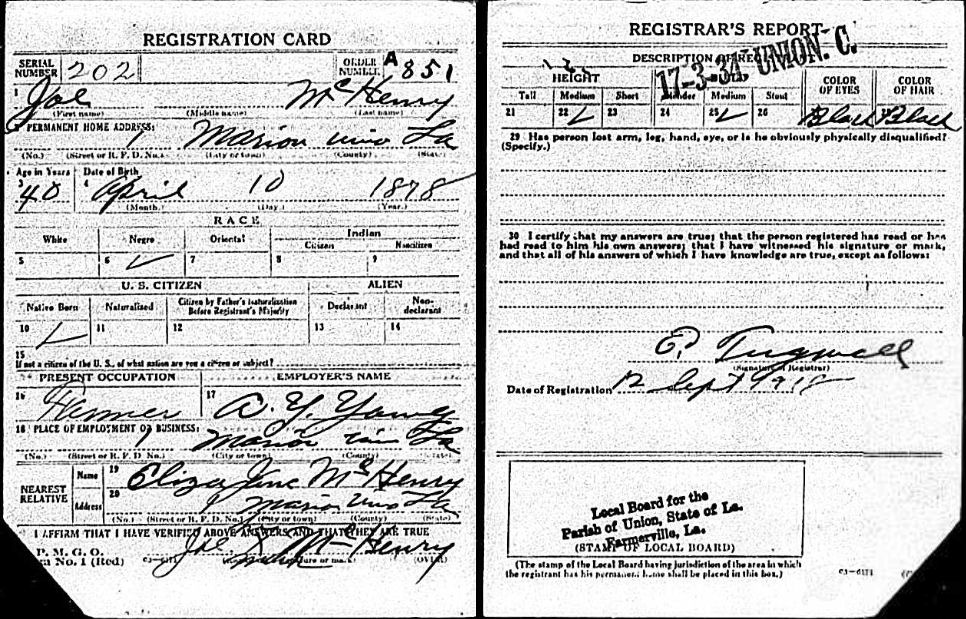 REGISTRATION CARD
SERIAL NUMBER 202 ORDER NUMBER A851
1 Joe McHenry
(First name) (Middle name) (Last name)
2 PERMANENT HOME ADDRESS:
1 Marion La
(No.) (Street or R. F. D. No.) (City or town) (County) (State)
Age in Years Date of Birth
3 40 4 April 10 1878
(Month.) (Day.) (Year.)
RACE
White Negro Oriental Indian
Citizen Noncitizen
5 6 ✓ 7 8 9
U. S. CITIZEN ALIEN
Native Born Naturalized Citizen by Father's Naturalization Before Registrant's Majority Declarant Non-declarant
10 ✓ 11 12 13 14
15
If not a citizen of the U. S., of what nation are you a citizen or subject?
PRESENT OCCUPATION EMPLOYER'S NAME
16 Farmer 17 A. Y. Young
18 PLACE OF EMPLOYMENT OR BUSINESS:
1 Marion La
(No.) (Street or R. F. D. No.) (City or town) (County) (State)
NEAREST RELATIVE
Name 19 Eliza Jane McHenry
Address 20 1 Marion La
(No.) (Street or R. F. D. No.) (City or town) (County) (State)
I AFFIRM THAT I HAVE VERIFIED ABOVE ANSWERS AND THAT THEY ARE TRUE
P. M. G. O.
No. 1 (Red) Joe McHenry
(OVER)
REGISTRAR'S REPORT
17-3-34 UNION. C.
DESCRIPTION OF
HEIGHT COLOR OF EYES COLOR OF HAIR
Tall Medium Short Slender Medium Stout
21 22 ✓ 23 24 25 ✓ 26 Black Black
29 Has person lost arm, leg, hand, eye, or is he obviously physically disqualified?
(Specify.)
30 I certify that my answers are true; that the person registered has read or has
had read to him his own answers; that I have witnessed his signature or mark,
and that all of his answers of which I have knowledge are true, except as follows:
E. Tugwell
(Signature of Registrar)
Date of Registration 12 Sept 1918
Local Board for the
Parish of Union, State of La.
Farmerville, La.
(STAMP OF LOCAL BOARD)
(The stamp of the Local Board having jurisdiction of the area in which
the registrant has his permanent home shall be placed in this box.)